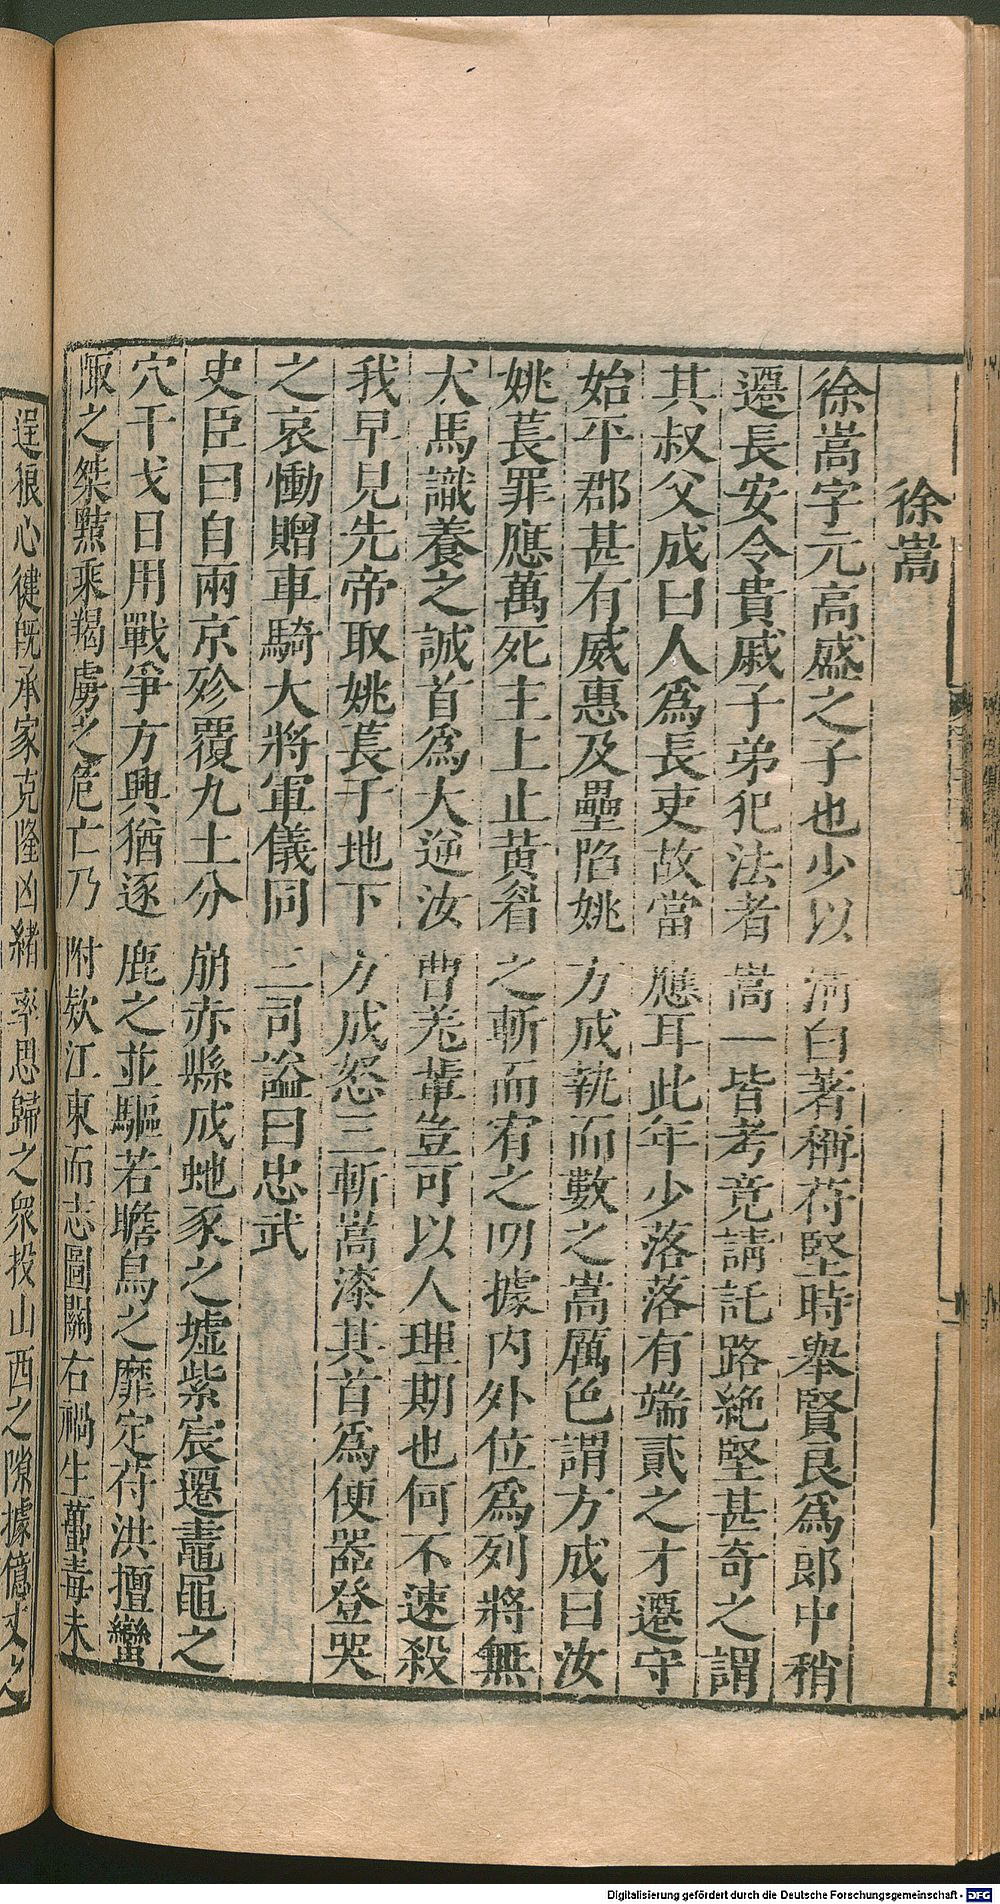 徐嵩
徐嵩字元高盛之子也少以清白著稱苻堅時舉賢良爲郎中稍
遷長安令貴戚子弟犯法者嵩一皆考竟請託路絶堅甚奇之謂
其叔父成曰人爲長吏故當應耳此年少落落有端貳之才遷守
始平郡甚有威惠及壘陷姚方成執而數之嵩厲色謂方成曰汝
姚萇罪應萬死主上止黄眉之斬而宥之叨據内外位爲列將無
犬馬識養之誠首爲大逆汝曹羌輩豈可以人理期也何不速殺
我早見先帝取姚萇于地下方成怒三斬嵩漆其首爲便器登哭
之哀慟贈車騎大將軍儀同三司謚曰忠武
史臣曰自兩京殄覆九土分崩赤縣成虵豕之墟紫宸遷鼃黽之
穴干戈日用戰爭方興猶逐鹿之並驅若瞻烏之靡定苻洪擅蠻
陬之桀黠乘羯虜之危亡乃附欵江東而志圖關右禍生蠆毒未
逞狼心健旣承家克隆凶緒率思歸之衆投山西之隙據億丈之
Digitalisierung gefördert durch die Deutsche Forschungsgemeinschaft - DFG